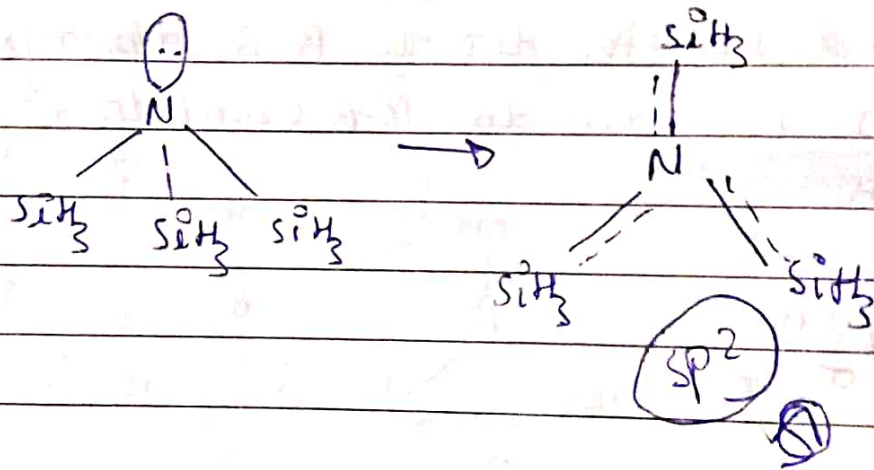 ..
SiH3
N
N
SiH3 SiH3 SiH3
SiH3 SiH3
SP2